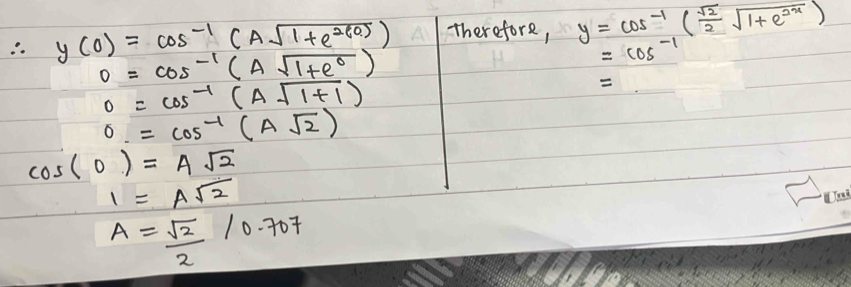 ∴ y(0) = cos⁻¹ (A√(1+e²⁽⁰⁾))
0 = cos⁻¹ (A√(1+e⁰))
0 = cos⁻¹ (A√(1+1))
0 = cos⁻¹ (A√2)
cos(0) = A√2
1 = A√2
A = √2/2 / 0.707
Therefore, y = cos⁻¹ (√2/2 √(1+e²ˣ))
= cos⁻¹
=